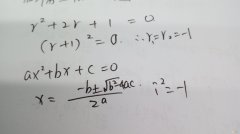 r² + 2r + 1 = 0
(r+1)² = 0. ∴ r₁ = r₂ = -1
ax² + bx + c = 0
x = (-b ± √(b² - 4ac)) / 2a  i² = -1